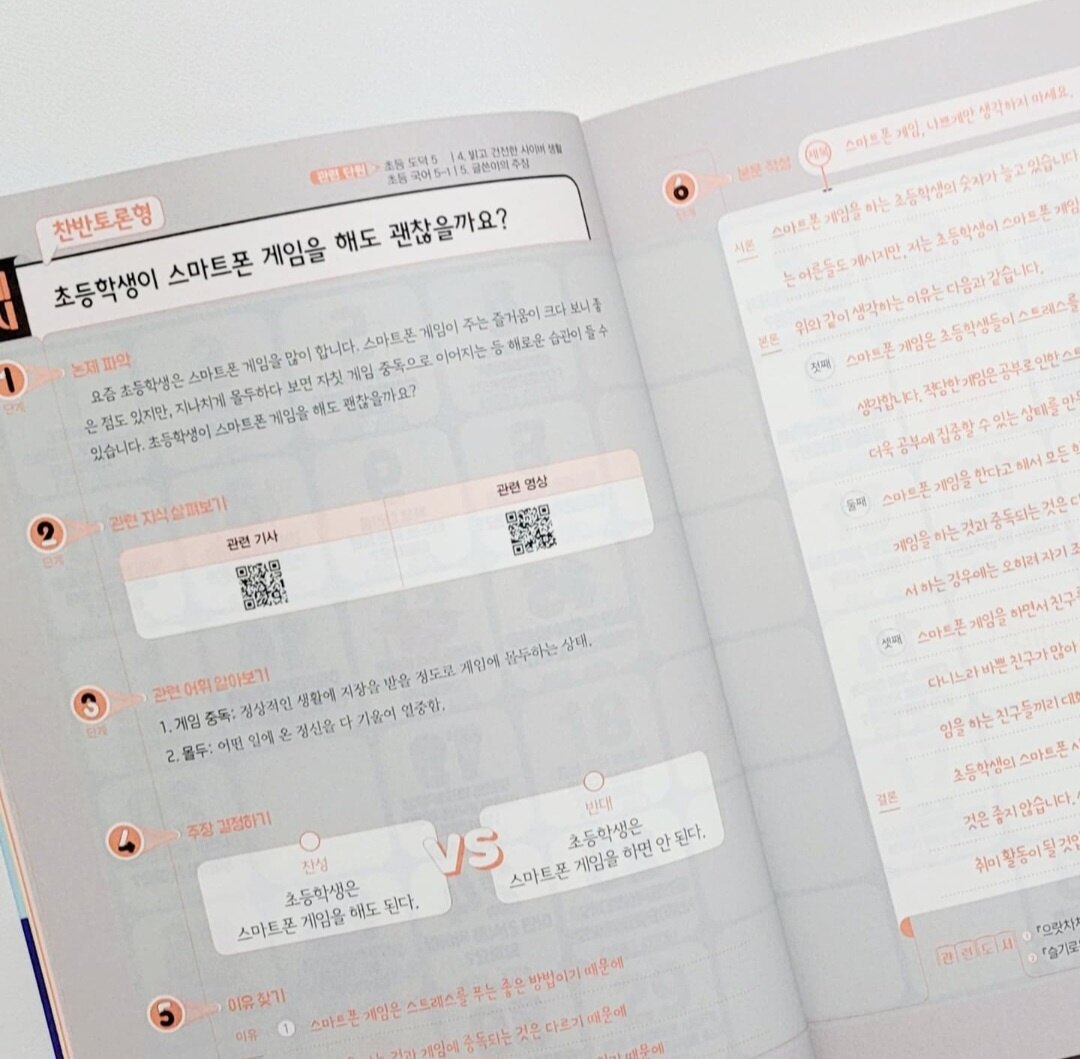 관련 단원 초등 도덕 5 | 4. 밝고 건전한 사이버 생활
초등 국어 5-1 | 5. 글쓴이의 주장
찬반토론형
초등학생이 스마트폰 게임을 해도 괜찮을까요?
1 단계 논제 파악
요즘 초등학생은 스마트폰 게임을 많이 합니다. 스마트폰 게임이 주는 즐거움이 크다 보니 좋
은 점도 있지만, 지나치게 몰두하다 보면 자칫 게임 중독으로 이어지는 등 해로운 습관이 들 수
있습니다. 초등학생이 스마트폰 게임을 해도 괜찮을까요?
2 단계 관련 지식 살펴보기
관련 기사 관련 영상
3 단계 관련 어휘 알아보기
1. 게임 중독: 정상적인 생활에 지장을 받을 정도로 게임에 몰두하는 상태.
2. 몰두: 어떤 일에 온 정신을 다 기울여 열중함.
4 단계 주장 결정하기
찬성
초등학생은
스마트폰 게임을 해도 된다.
VS
반대
초등학생은
스마트폰 게임을 하면 안 된다.
5 단계 이유 찾기
이유 1 스마트폰 게임은 스트레스를 푸는 좋은 방법이기 때문에
것과 게임에 중독되는 것은 다르기 때문에
때문에
6 단계 본문 작성
제목 스마트폰 게임, 나쁘게만 생각하지 마세요.
서론 스마트폰 게임을 하는 초등학생의 숫자가 늘고 있습니다
는 어른들도 계시지만, 저는 초등학생이 스마트폰 게임
위와 같이 생각하는 이유는 다음과 같습니다.
본론 첫째 스마트폰 게임은 초등학생들이 스트레스를
생각합니다. 적당한 게임은 공부로 인한 스트
더욱 공부에 집중할 수 있는 상태를 만
둘째 스마트폰 게임을 한다고 해서 모든
게임을 하는 것과 중독되는 것은 다
서 하는 경우에는 오히려 자기 조
셋째 스마트폰 게임을 하면서 친구
다니느라 바쁜 친구가 많아
임을 하는 친구들끼리 대화
결론 초등학생의 스마트폰 사
것은 좋지 않습니다.
취미 활동이 될 것
관련도서 1 『으랏차차
2 『슬기로